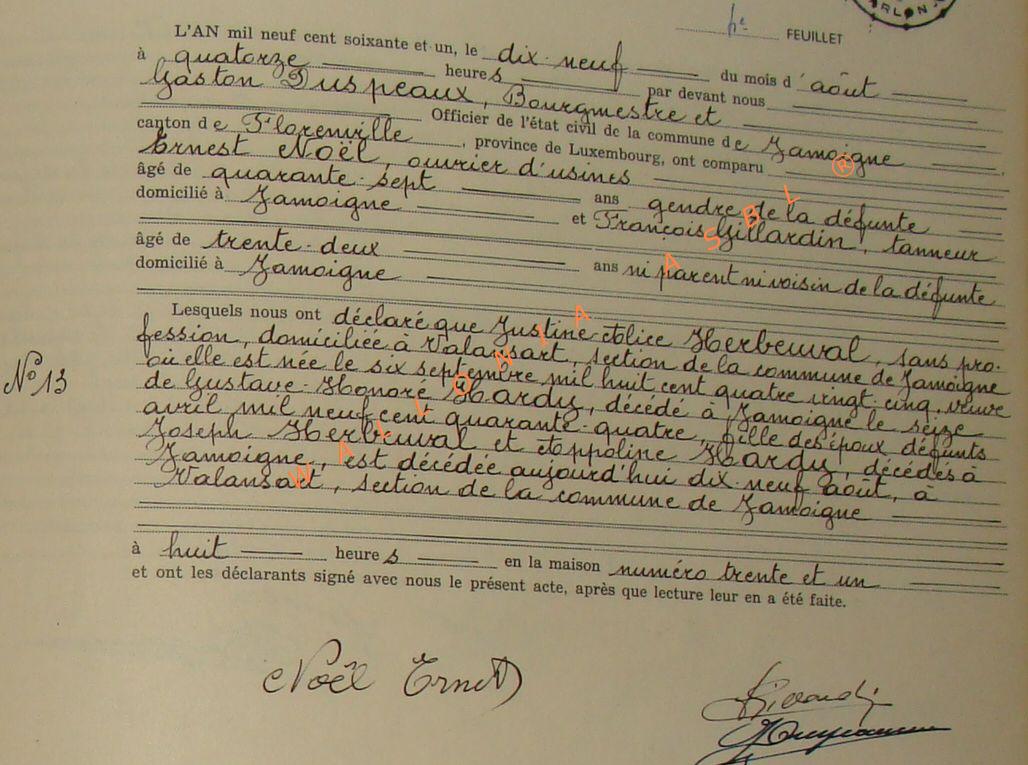 ARLON
1e FEUILLET
L'AN mil neuf cent soixante et un, le dix-neuf du mois d'août
à quatorze heures par devant nous
Gaston Duspeaux, Bourgmestre et
Officier de l'état civil de la commune de Jamoigne
canton de Florenville, province de Luxembourg, ont comparu
Ernest Noël, ouvrier d'usines
âgé de quarante-sept ans gendre de la défunte
domicilié à Jamoigne et François Gillardin, tanneur
âgé de trente-deux ans ni parent ni voisin de la défunte
domicilié à Jamoigne
Lesquels nous ont déclaré que Justine-Alice Herbeuval, sans pro-
fession, domiciliée à Valansart, section de la commune de Jamoigne
où elle est née le six septembre mil huit cent quatre vingt-cinq, veuve
de Gustave-Honoré Hardy, décédé à Jamoigne le seize
avril mil neuf cent quarante-quatre, fille des époux défunts
Joseph Herbeuval et Appoline Hardy, décédés à
Jamoigne, est décédée aujourd'hui dix-neuf août, à
Valansart, section de la commune de Jamoigne
à huit heures en la maison numéro trente et un
et ont les déclarants signé avec nous le présent acte, après que lecture leur en a été faite.
No 13
Noël Ernest
WALLONIA ASBL ®